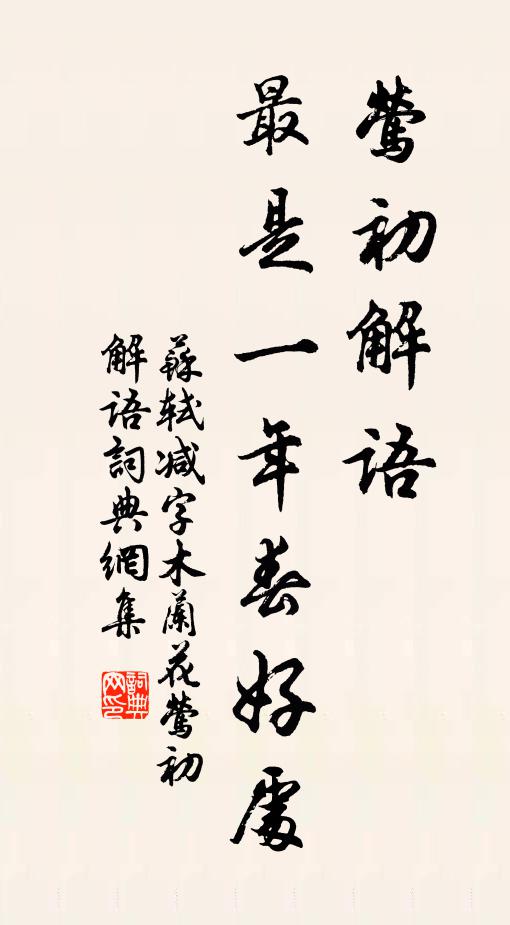 鶯初解語
最是一年春好處
蘇軾減字木蘭花鶯初
解語詞典網集
詞典
网印